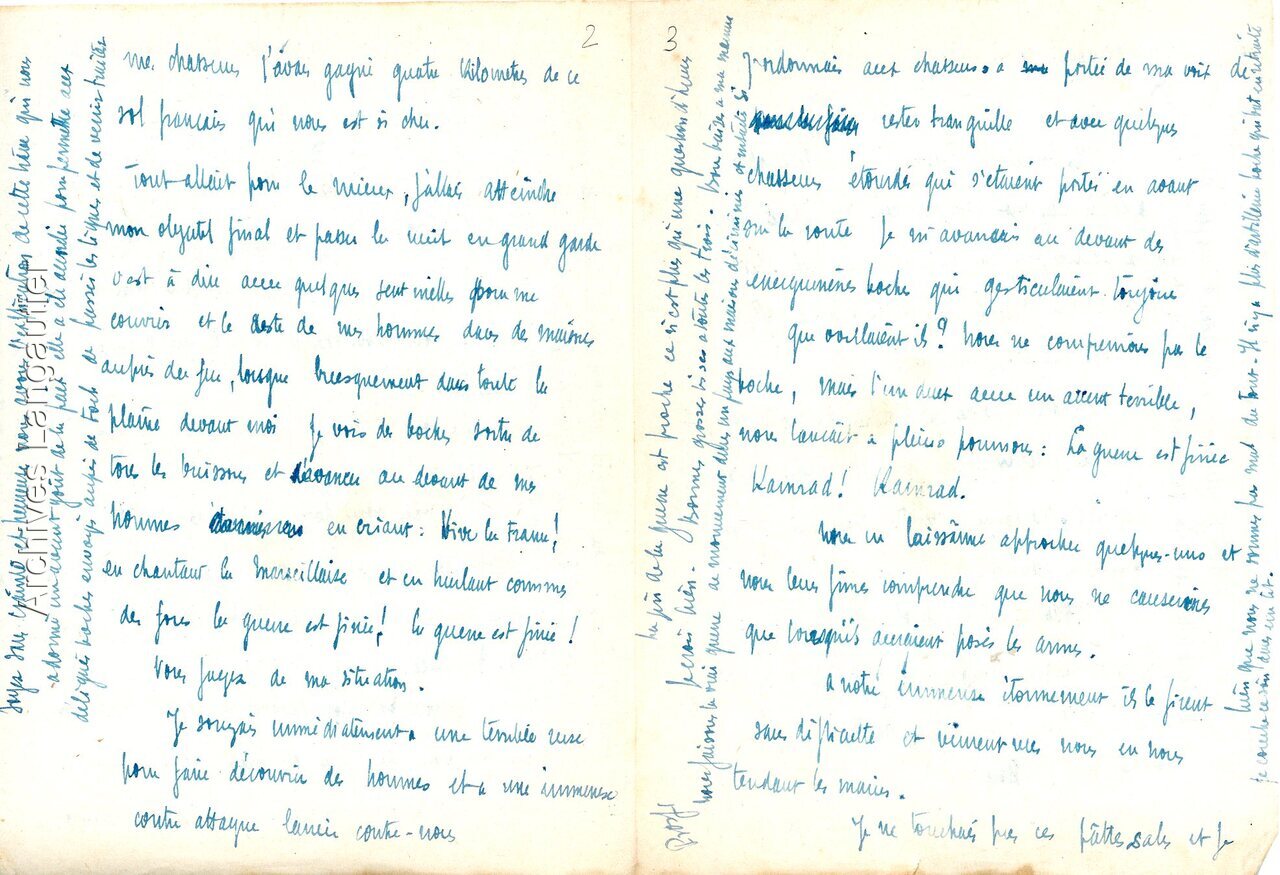 2
mes chasseurs j'avais gagné quatre kilomètres de ce
sol français qui nous est si cher.
Tout allait pour le mieux, j'allais atteindre
mon objectif final et passer la nuit en grand garde
c'est à dire avec quelques sentinelles pour me
couvrir et le reste de mes hommes dans des maisons
auprès du feu, lorsque brusquement dans toute la
plaine devant moi je vois des boches sortir de
tous les buissons et s'avancer au devant de mes
hommes en criant: Vive la France!
en chantant la Marseillaise et en hurlant comme
des fous la guerre est finie! la guerre est finie!
Vous jugez de ma situation.
Je songeais immédiatement a une terrible ruse
pour faire découvrir des hommes et a une immense
contre attaque lancée contre-nous
Soyez sans crainte et heureux nous avons l'explication de cette trêve qui nous
a donné un avant goût de la paix elle a été accordée pour permettre aux
délégués boches envoyés auprès de Foch de passer les lignes et de venir traiter
Archives Langautier
3
J'ordonnais aux chasseurs a portée de ma voix de
rester tranquille et avec quelques
chasseurs étourdis qui s'étaient portés en avant
sur la route Je m'avançais au devant des
énergumènes boches qui gesticulaient toujours
que voulaient ils? Nous ne comprenions pas le
boche, mais l'un avec un accent terrible,
nous lançait a pleins poumons: La guerre est finie
Kamrad! Kamrad.
Nous en laissâmes approcher quelques-uns et
nous leur fîmes comprendre que nous ne causerions
que lorsqu'ils auraient posés les armes.
a notre immense étonnement ils le firent
sans difficulté et vinrent vers nous en nous
tendant les mains.
Je ne touchais pas ces pattes sales et je
La fin de la guerre est proche ce n'est plus qu'une question d'heures
Bonnes grosses bises a toutes les trois. Bon baiser a ma maman
nous faisons la vraie guerre de mouvement dans un pays aux maisons
bien que nous ne sommes pas mal du tout. Il n'y a plus d'artillerie boche qui bat en retraite
je couche ce soir dans un lit.